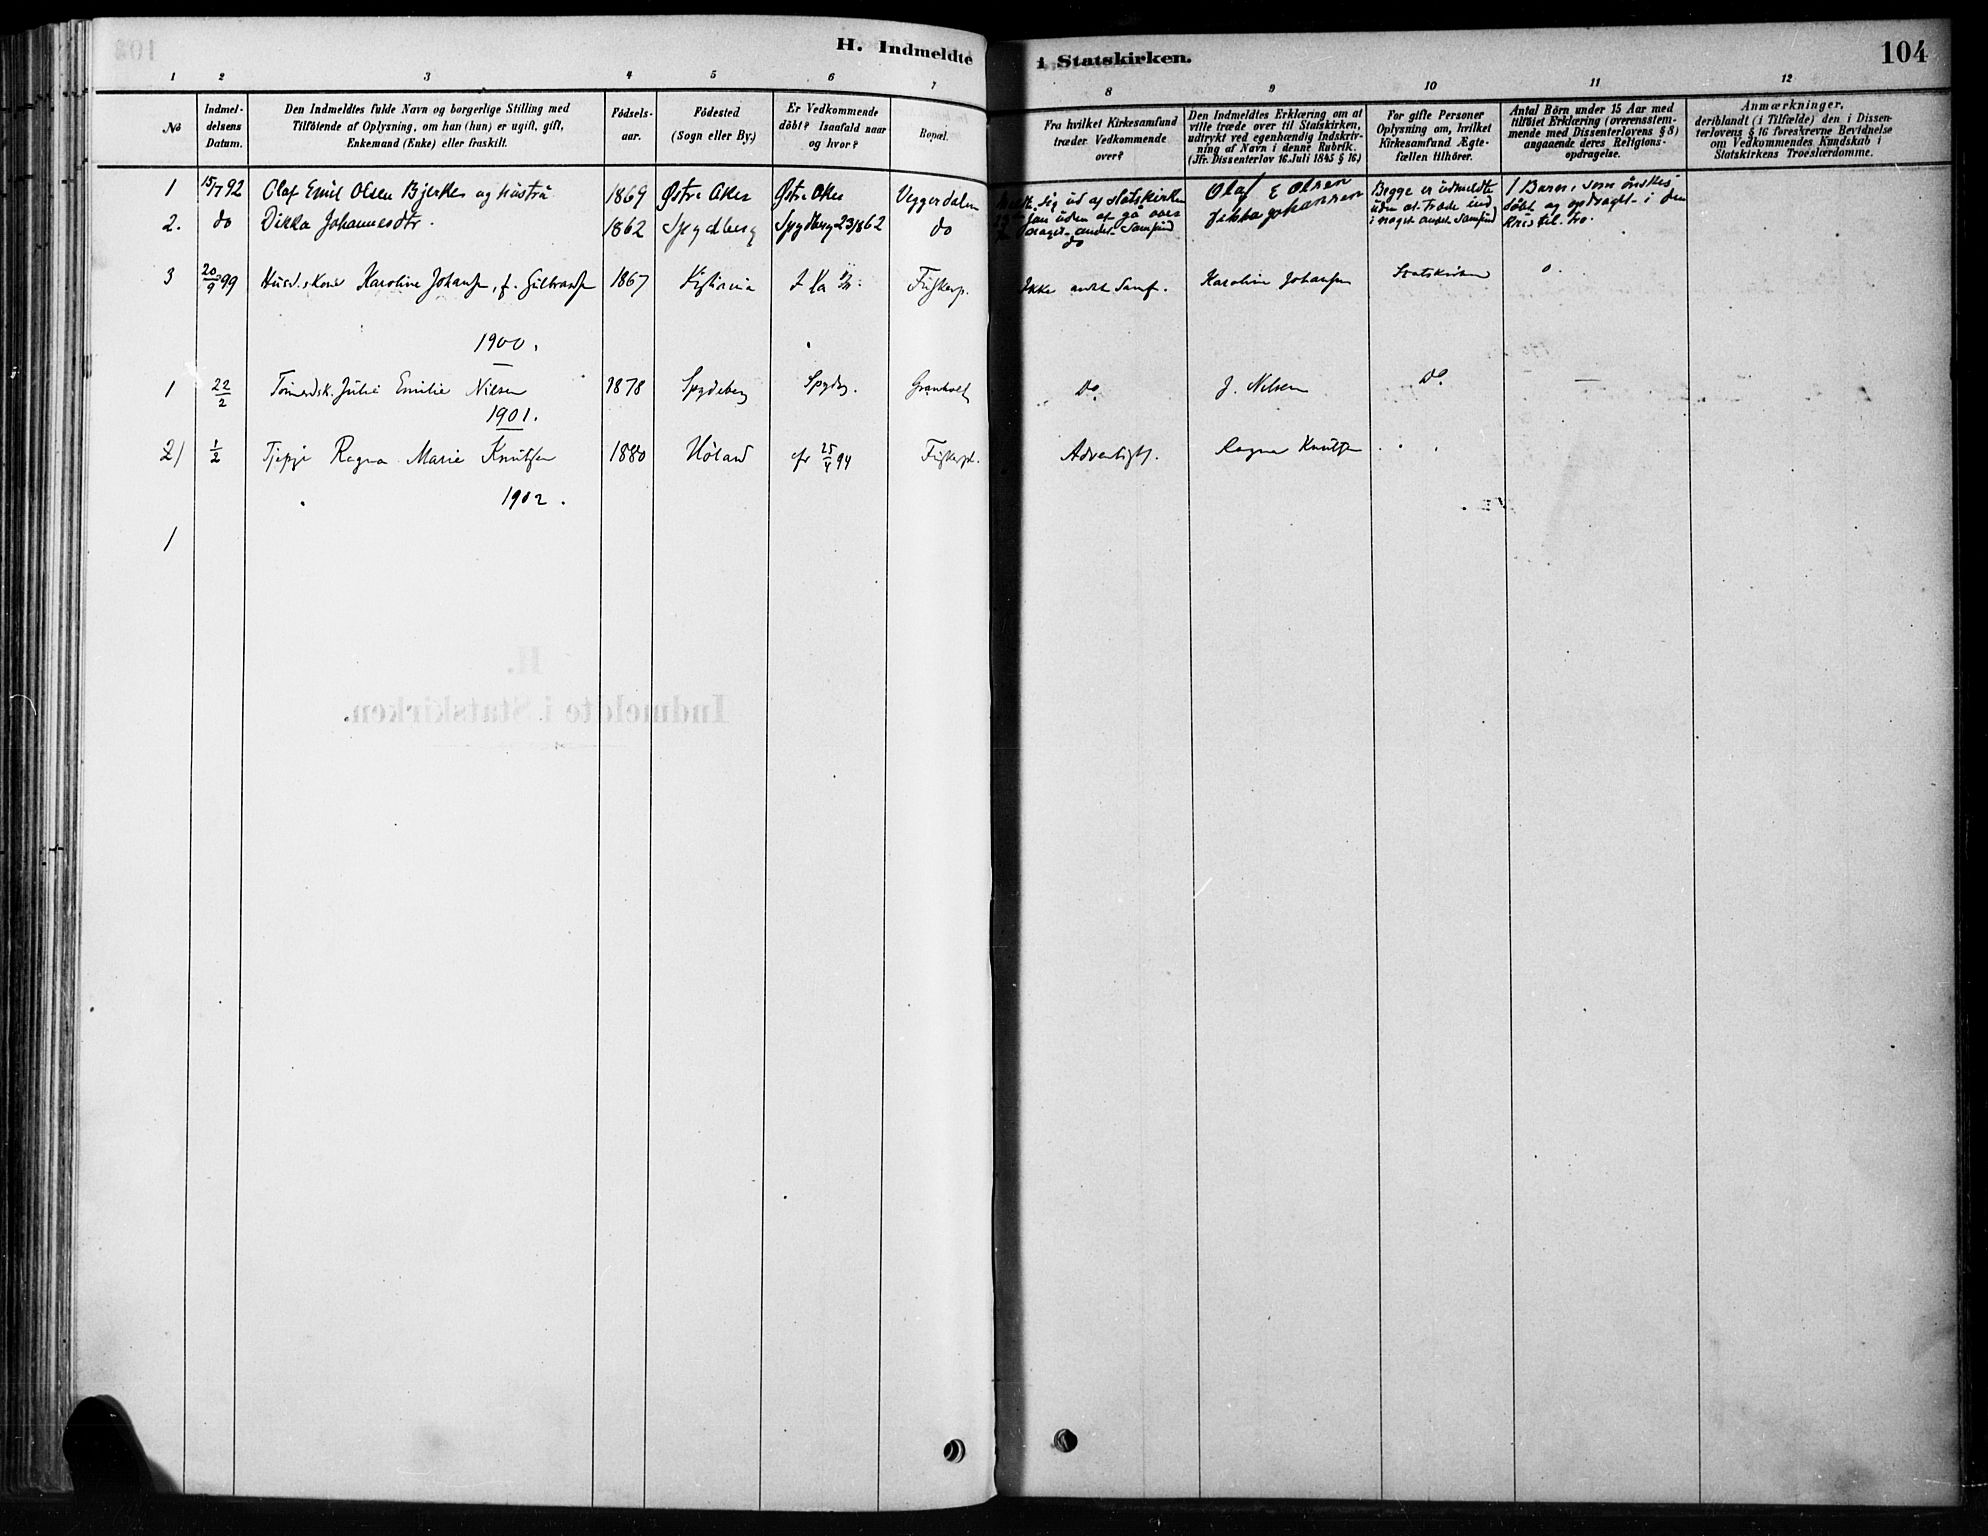 H. Indmeldte i Statskirken.
104
1 2 3 4 5 6 7 8 9 10 11 12
No
Indmel-
delsens
Datum.
Den Indmeldtes fulde Navn og borgerlige Stilling med
Tilföiende af Oplysning, om han (hun) er ugift, gift,
Enkemand (Enke) eller fraskilt.
Födsels-
aar.
Födested
(Sogn eller By.)
Er Vedkommende
döbt? Isaafald naar
og hvor?
Bopæl.
Fra hvilket Kirkesamfund
træder Vedkommende
over?
Den Indmeldtes Erklæring om at
ville træde over til Statskirken,
udtrykt ved egenhændig Indskriv-
ning af Navn i denne Rubrik.
(Jfr. Dissenterlov 16. Juli 1845 § 16)
For gifte Personer
Oplysning om, hvilket
Kirkesamfund Ægte-
fællen tilhörer.
Antal Börn under 15 Aar med
tilföiet Erklæring (overensstem-
mende med Dissenterlovens § 8)
angaaende deres Religions-
opdragelse.
Anmærkninger,
deriblandt (i Tilfælde) den i Dissen-
terlovens § 16 foreskrevne Bevidnelse
om Vedkommendes Kundskab i
Statskirkens Troeslærdomme.
1 15/7 92 Olaf Emil Olsen Bjerkes og Hustru 1869 Østre Aker Østre Aker Veggerdalen
sig ud af Statskirken
uden at gå over
noget andet Samfund
Olaf E Olsen
Begge er udmeldte
uden at træde ind
i noget andet Samfund
1 Barn, som ønskes
døbt og opdraget i den
kristel. tro.
2. do Dikka Johannesdtr. 1862 Spydberg Spydberg 23/8 62 do
do
3 20/9 99 Husd.skone Karoline Johansen, f. 1867 Kristiania
Ikke andt Samf. Karoline Johansen Statskirken 0.
1900.
1 22/2 Julie Emilie Nilsen 1878 Spydeberg Spydbg. Granholt Do. J. Nilsen Do. —
1901.
2) 1/2 Ragna Marie Knutsen 1880 Höland 25/4 94 Adventist. Ragna Knutsen
1902.
1